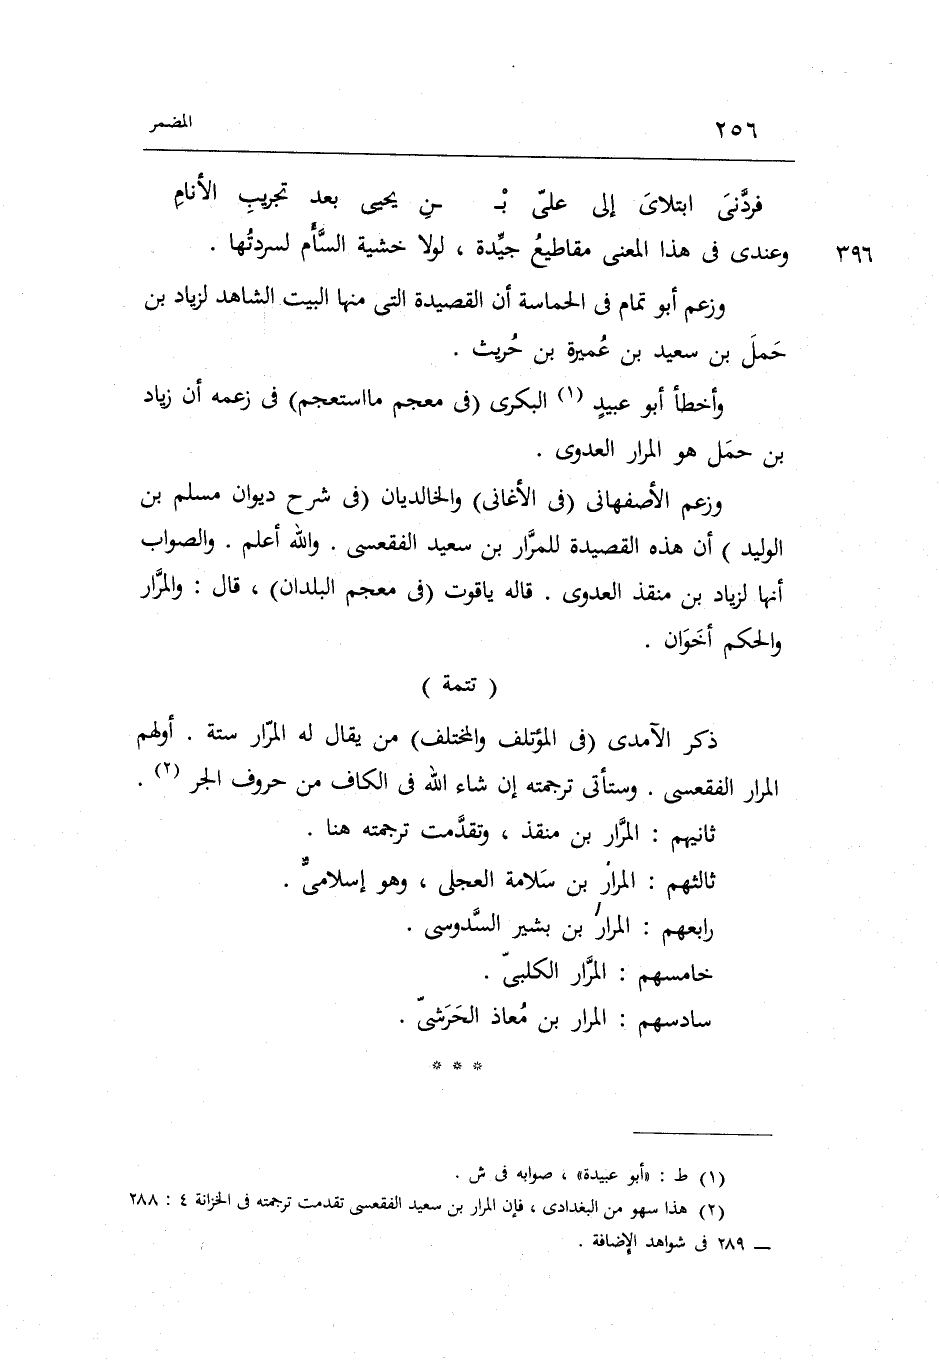 ٢٥٦ المضمر
فردَّنىَ ابتلاىَ إلى علىّ بْـ ـنِ يحيى بعد تجريبِ الأنامِ
وعندى فى هذا المعنى مقاطيعُ جيِّدة ، لولا خشية السَّأَم لسردتُها . ٣٩٦
وزعم أبو تمام فى الحماسة أن القصيدة التى منها البيت الشاهد لزياد بن
حَملَ بن سعيد بن عُميرة بن حُريث .
وأخطأ أبو عبيدٍ (١) البكرى (فى معجم مااستعجم) فى زعمه أن زياد
بن حمَل هو المرار العدوى .
وزعم الأصفهانى (فى الأغانى) والخالديان (فى شرح ديوان مسلم بن
الوليد ) أن هذه القصيدة للمرَّار بن سعيد الفقعسى . والله أعلم . والصواب
أنها لزياد بن منقذ العدوى . قاله ياقوت (فى معجم البلدان) ، قال : والمرَّار
والحكم أخَوَان .
( تتمة )
ذكر الآمدى (فى المؤتلف والمختلف) من يقال له المرّار ستة . أولهم
المرار الفقعسى . وستأتى ترجمته إن شاء الله فى الكاف من حروف الجر (٢) .
ثانيهم : المرَّار بن منقذ ، وتقدَّمت ترجمته هنا .
ثالثهم : المرار بن سَلامة العجلى ، وهو إسلامىٌّ .
رابعهم : المرار بن بشير السَّدوسى .
خامسهم : المرَّار الكلبىّ .
سادسهم : المرار بن مُعاذ الحَرَشىّ .
* * *
(١) ط : «أبو عبيدة» ، صوابه فى ش .
(٢) هذا سهو من البغدادى ، فإن المرار بن سعيد الفقعسى تقدمت ترجمته فى الخزانة ٤ : ٢٨٨
ــ ٢٨٩ فى شواهد الإضافة .